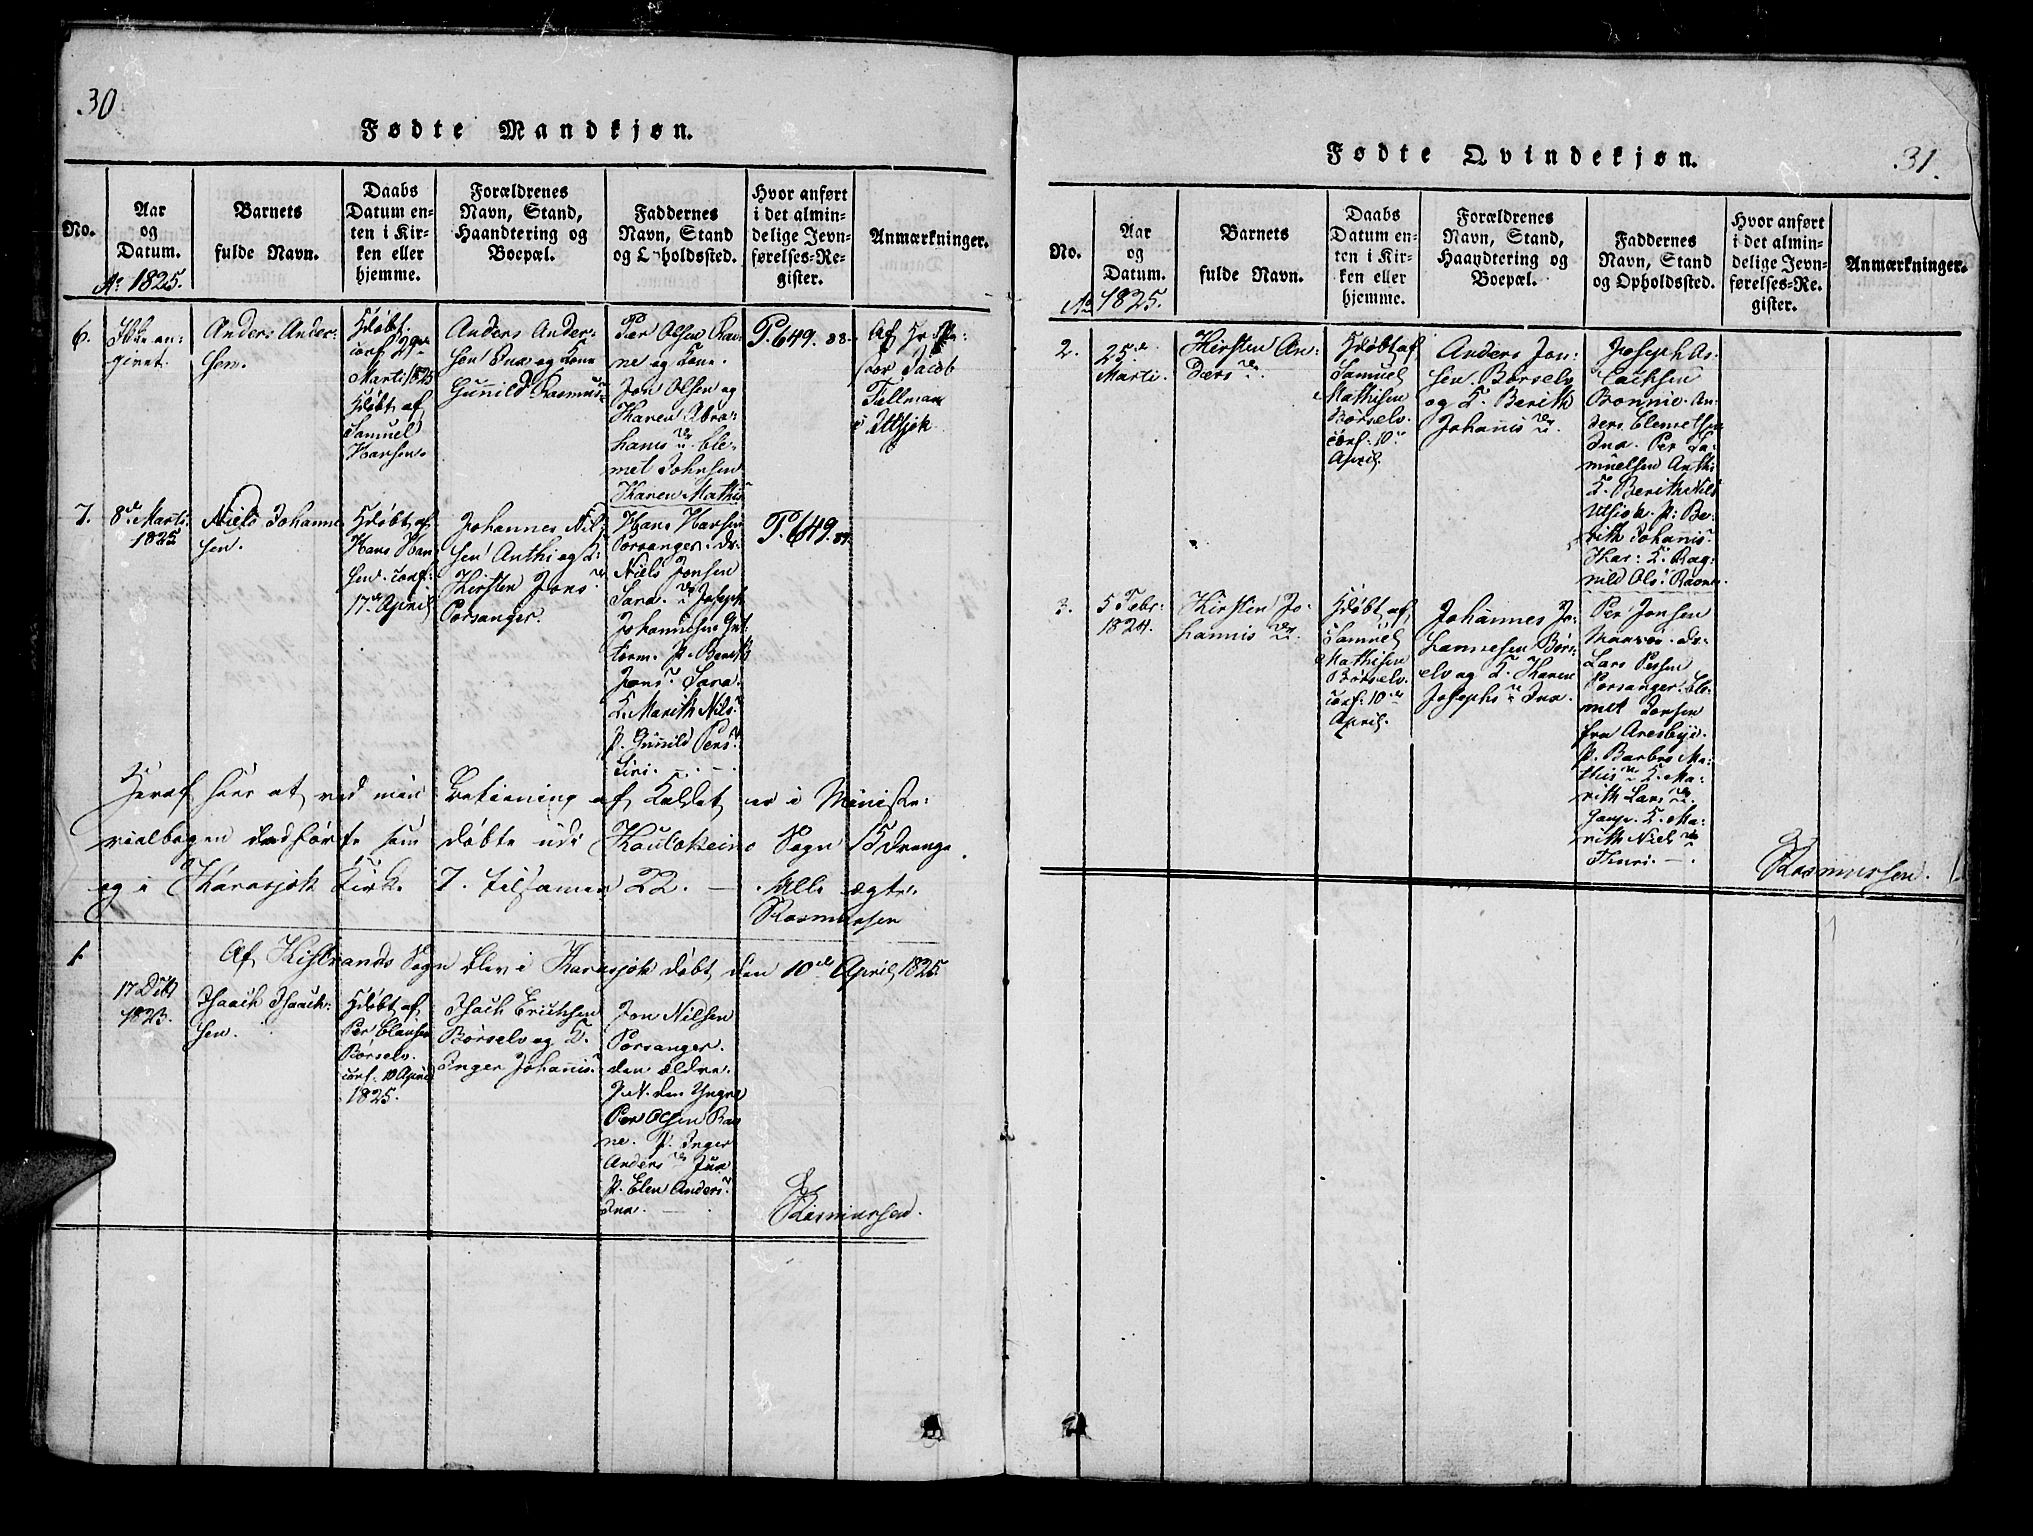 30.
Fødte Mandkjøn.
No.
Aar
og
Datum.
Aº 1825.
Barnets
fulde Navn.
Daabs
Datum en-
ten i Kir-
ken eller
hjemme.
Forældrenes
Navn, Stand,
Haandtering og
Boepæl.
Faddernes
Navn, Stand
og Opholdssted.
Hvor anført
i det almin-
delige Jevn-
førelses-Re-
gister.
Anmærkninger.
6.
Ikke an-
givet.
Anders Ander-
sen.
Hdøbt.
conf. 29de
Marti 1825
Hdøbt af
Samuel
Hansen.
Anders Ander-
sen Ina og Kone
Gunild Rasmus
Per Olsen Rav-
ne og Kone.
Jon Olsen og
Karen Abra-
hams Cle-
met Johnsen
Karen Mathis
P. 649. 88.
Af Hr
Jacob
Fellman
i Utsjok.
7.
8de Marti
1825
Niels Johanne
sen.
Hdøbt af
Hans Han
sen. conf:
17de April
Johannes Nil-
sen Anthi og K:
Kirsten Jons
Porsanger.
Hans Hansen
Porsanger. ds.
Niels Jonsen
Sara. Joseph
Johannesen Gut-
torm. P. Berith
Jons. Sara
K. Marith Nils
P. Gunild Pers
Siri.
P. 649. 89.
Heraf sees at ved min Betiening af Kaldet er i Ministe-
rialbogen indførte som døbte udi Koutokeino Sogn 15 Drenge
og i Karasjok Kirke 7. tilsamen 22. Alle ægte.
Rasmussen
1.
Af Kistrands Sogn blev i Karasjok døbt den 10de April 1825
17 Dcbr
1823.
Isaach Isaach-
sen.
Hdøbt af
Per Clausen
Børselv.
conf. 10 April
1825.
Isach Erichsen
Børselv og K.
Inger Johanis
Jon Nilsen
Porsanger.
den ældre.
J. N. den Yngre
Per Olsen Rav
ne. P. Inger
Anders Ina
P. Elen Anders
Ina.
Rasmussen.
31.
Fødte Qvindekjøn.
No.
Aar
og
Datum.
Aº 1825.
Barnets
fulde Navn.
Daabs
Datum en-
ten i Kir-
ken eller
hjemme.
Forældrenes
Navn, Stand,
Haandtering og
Boepæl.
Faddernes
Navn, Stand
og Opholdssted.
Hvor anført
i det almin-
delige Jevn-
førelses-Re-
gister.
Anmærkninger.
2.
25de
Marti.
Kirsten An-
ders
Hdøbt af
Samuel
Mathisen
Børselv.
conf. 10de
April.
Anders Jon-
sen. Børselv
og K. Berith
Johanis
Joseph As-
lachsen
Bonnie. An-
ders Clemetsen
Ina. Per Sa-
muelsen Anthi
K. Berith Nils
Utsiok. P. Be-
rith Johanis
Kar: K. Rag-
nild Ols: Ravne.
3.
5 Febr.
1824.
Kirsten Jo-
hannis
Hdøbt af
Samuel
Mathisen
Børselv.
conf. 10de
April.
Johannes Jo-
hannesen Børs-
elv og K. Karen
Josephs Ina.
Per Jonsen
Maasøe. ds.
Lars Persen
Porsanger. Cle-
met Jonsen
fra Aresbye.
P. Barbro Ma-
this K. Ma-
rith Lars
K. Ma-
rith Niels
Thuri.
Rasmussen.